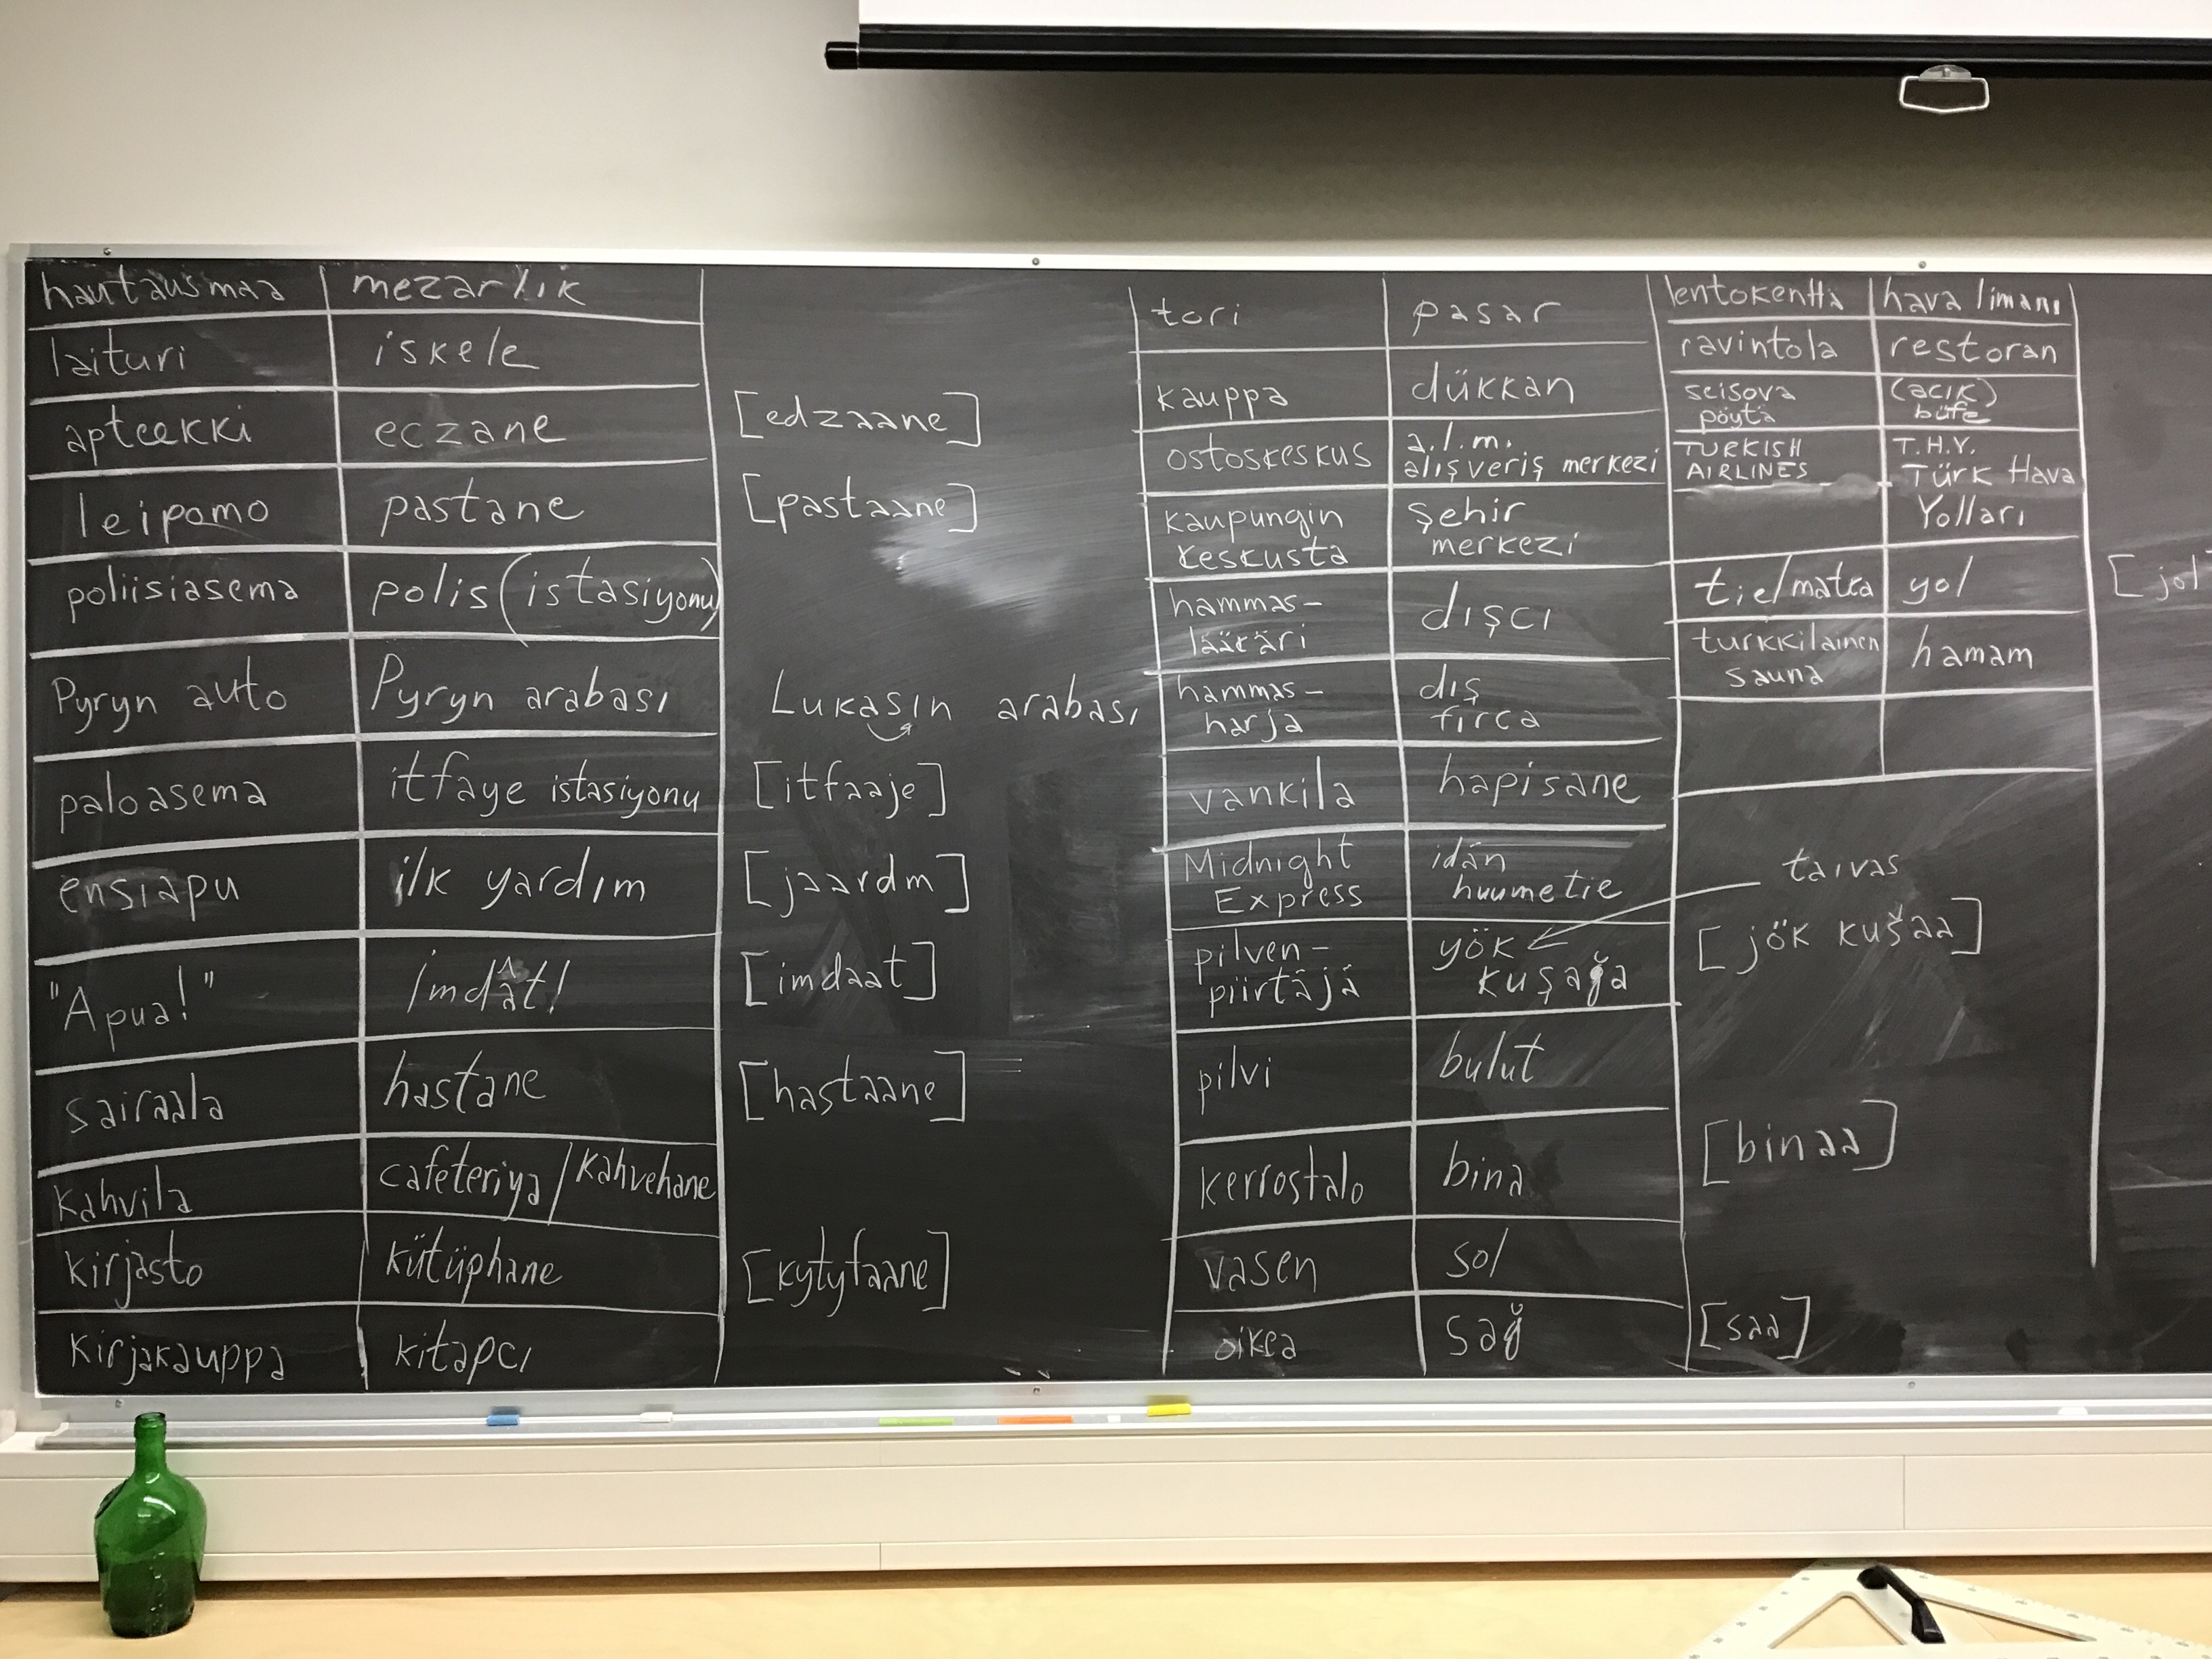 hautausmaa mezarlık
laituri iskele
apteekki eczane [edzaane]
leipomo pastane [pastaane]
poliisiasema polis (istasiyonu)
Pyryn auto Pyryn arabası Lukasın arabası
paloasema itfaye istasiyonu [itfaaje]
ensiapu ilk yardım [jaardm]
"Apua!" İmdât! [imdaat]
sairaala hastane [hastaane]
kahvila cafeteriya / kahvehane
kirjasto kütüphane [kytyfaane]
kirjakauppa kitapcı
tori pasar
kauppa dükkan
ostoskeskus a.l.m.
alışveriş merkezi
kaupungin şehir
keskusta merkezi
hammas- dışcı
lääkäri
hammas- dış
harja fırca
vankila hapisane
Midnight idän
Express huumetie
pilven- yök
piirtäjä kuşağa
pilvi bulut
kerrostalo bina
vasen sol
oikea sağ
lentokenttä hava limanı
ravintola restoran
seisova (acık)
pöytä büfe
TURKISH T.H.Y.
AIRLINES Türk Hava
Yolları
tie/matka yol [jol
turkkilainen hamam
sauna
taivas
[jök kušaa]
[binaa]
[saa]